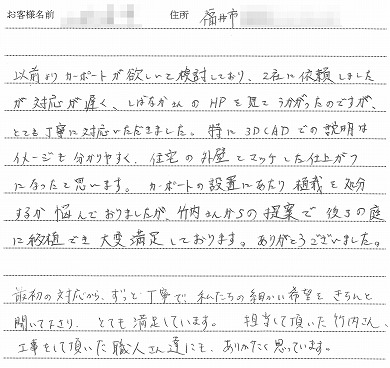 お客様名前 住所 福井市
以前よりカーポートが欲しいと検討しており、2社に依頼しました
が対応が遅く、しばなかさんのHPを見てうかがったのですが、
とても丁寧に対応いただきました。特に3DCADでの説明は
イメージも分かりやすく、住宅の外壁とマッチした仕上がり
になったと思います。カーポートの設置にあたり植栽を処分
するか悩んでおりましたが、竹内さんからの提案で後ろの庭
に移植でき大変満足しております。ありがとうございました。
最初の対応から、ずっと丁寧で、私たちの細かい希望をきちんと
聞いて下さり、とても満足しています。 担当して頂いた竹内さん、
工事をして頂いた職人さん達にも、ありがたく思っています。